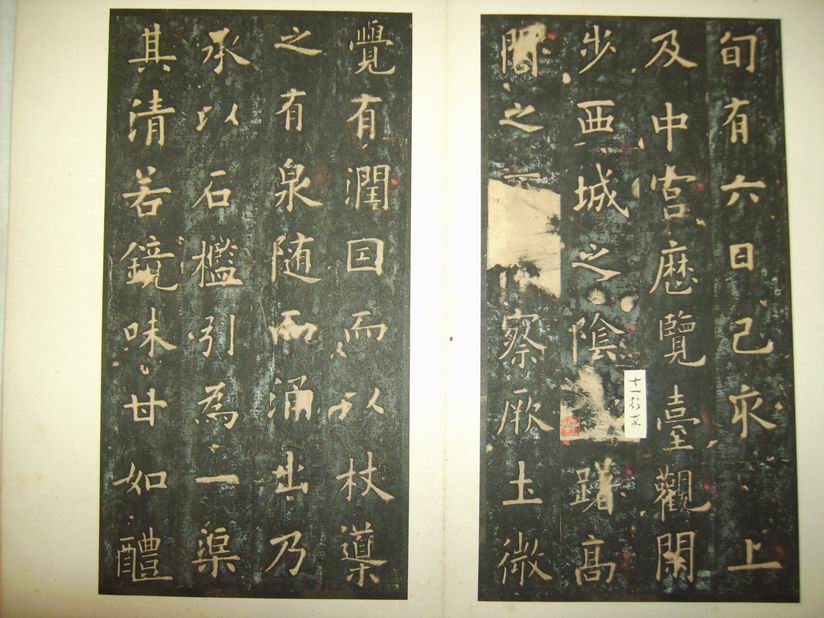 旬有六日己亥上
及中宮歴覽臺觀閑
步西城之陰躇髙
閣之下察厥土微
覺有潤因而以杖導
之有泉随而涌出乃
承以石檻引為一渠
其清若鏡味甘如醴